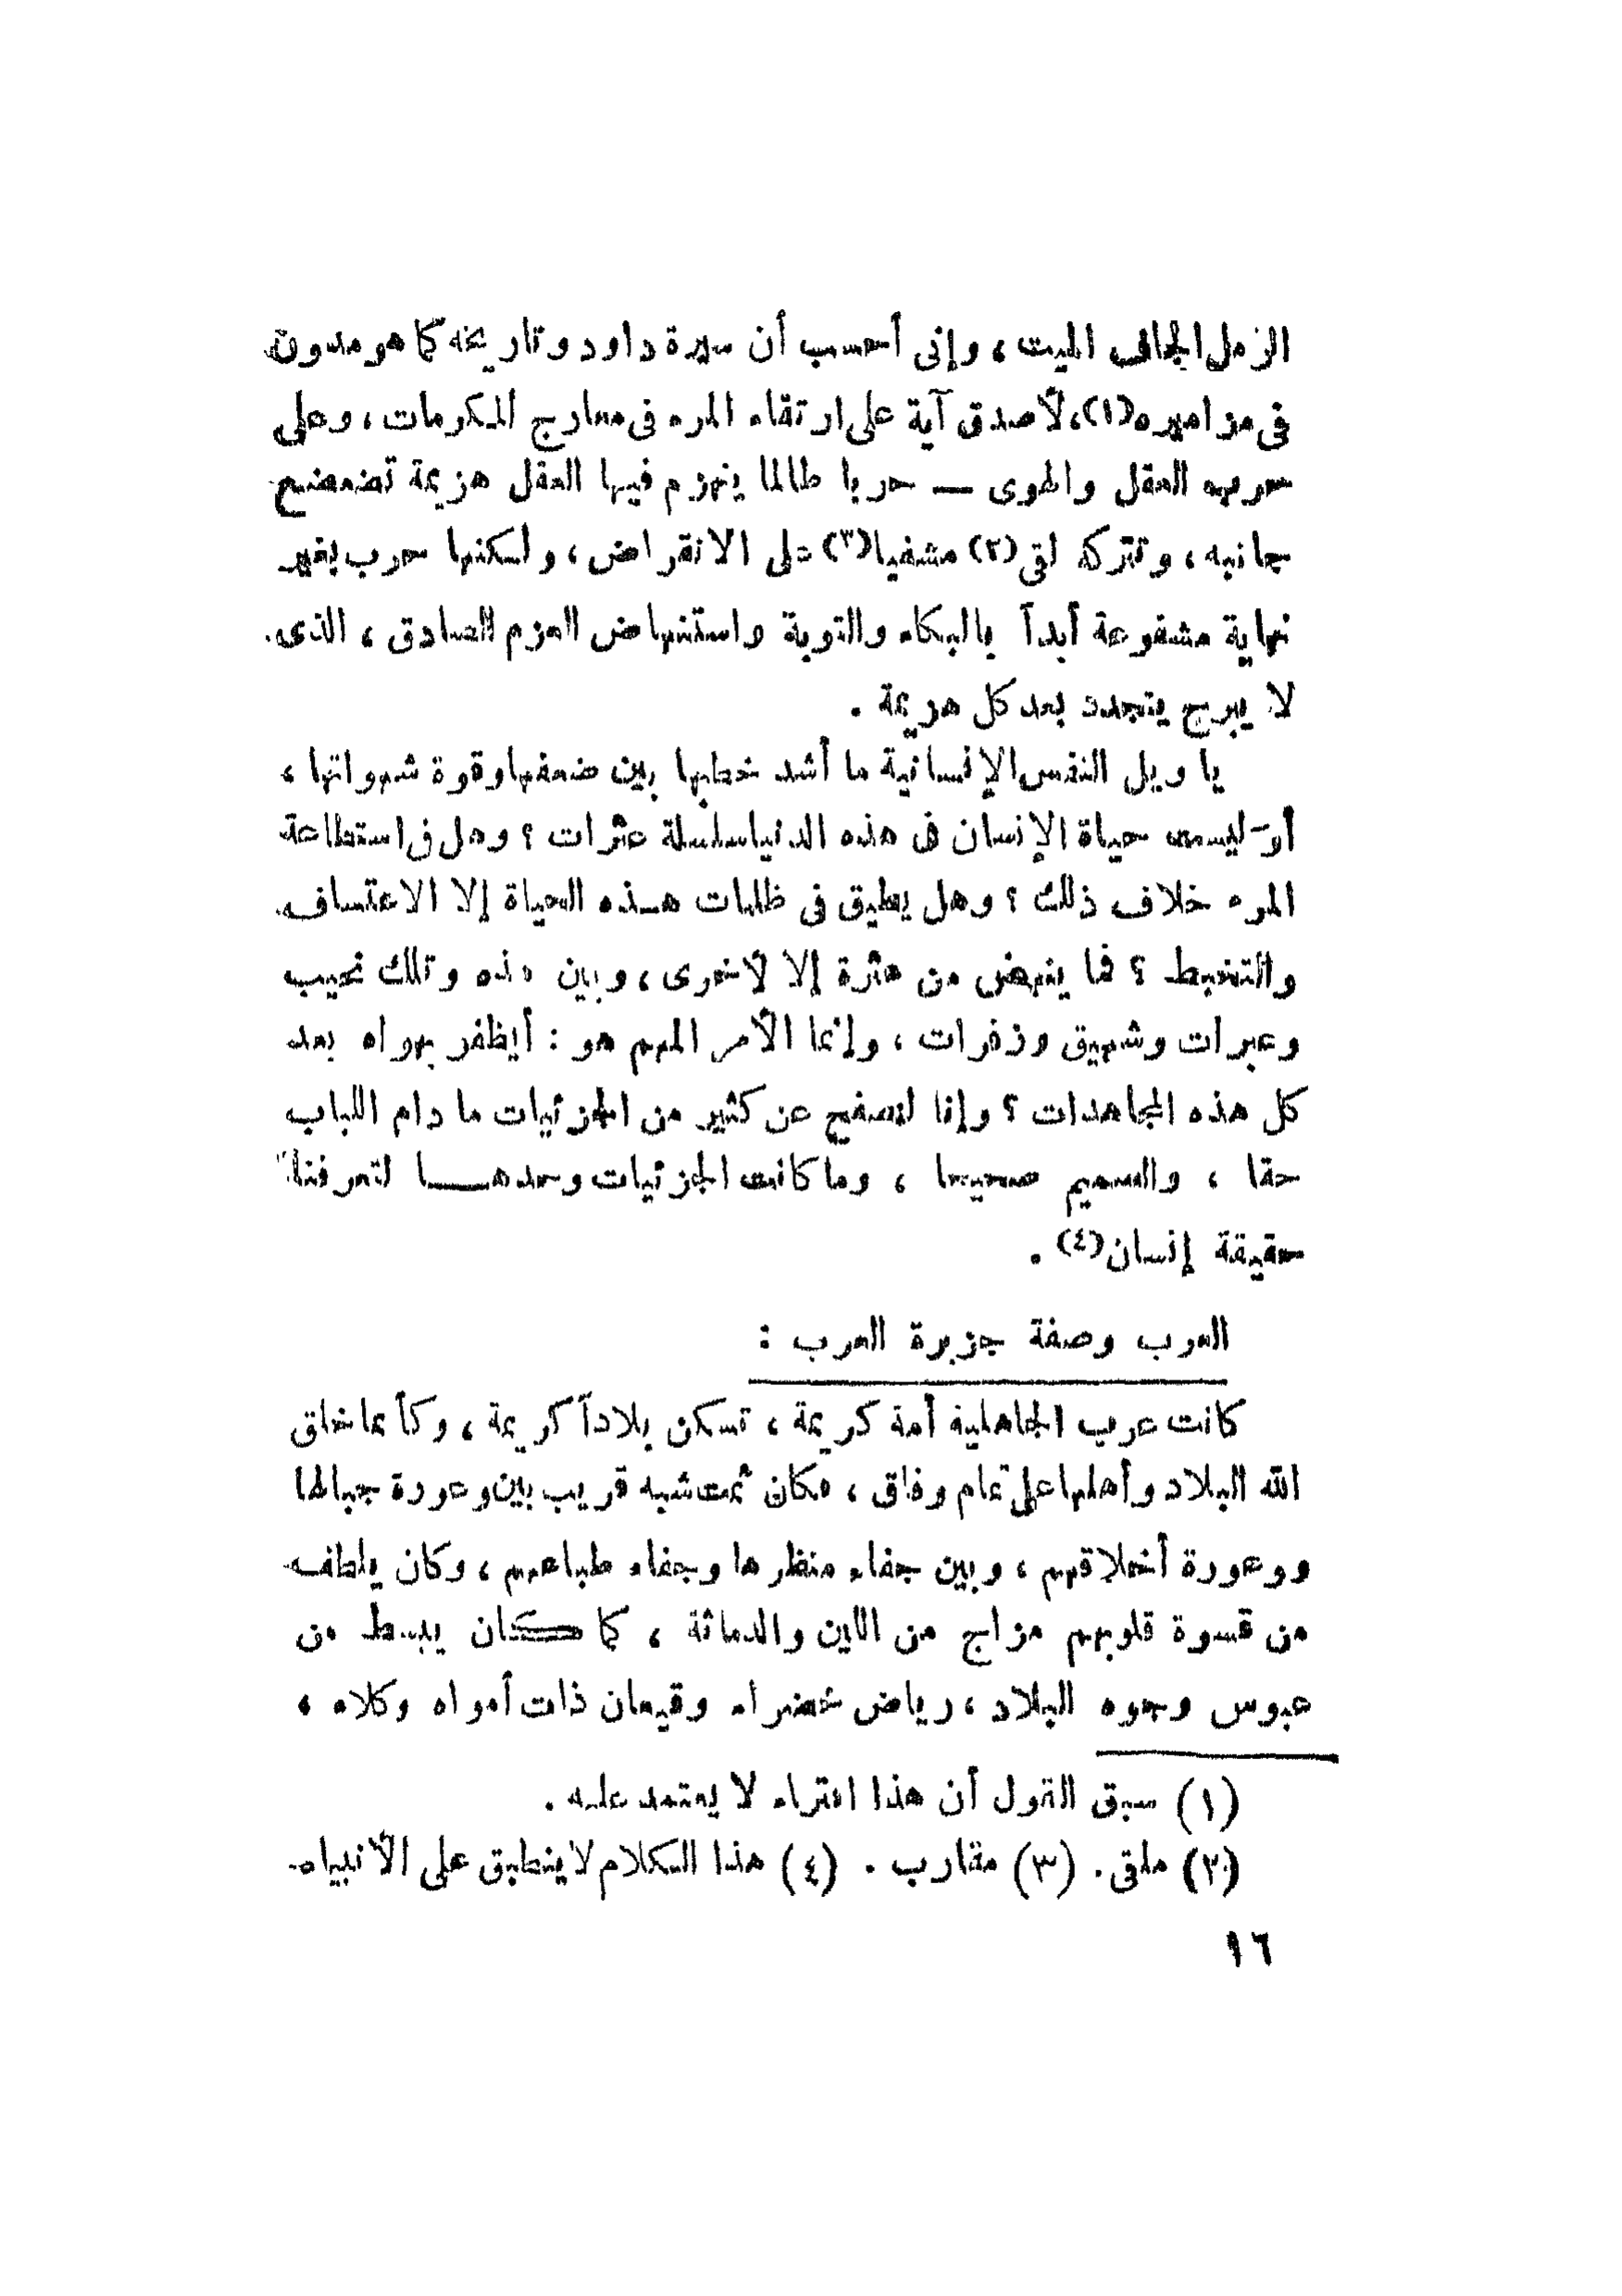 الزمل الجاف الميت ، وإنى أحسب أن سيرة داود وتاريخه كما هو مدون
فى مزاميره(١)، لأصدق آية على ارتقاء المرء فى معارج المكرمات ، وعلى
حرب العقل والهوى — حربا طالما ينهزم فيها العقل هزيمة تضعضع
جانبه ، وتتركه لقى (٢) مشفيا(٣) على الانقراض ، ولكنها حرب بغير
نهاية مشفوعة أبداً بالبكاء والتوبة واستنهاض العزم الصادق ، الذى
لا يبرح يتجدد بعد كل هزيمة .
يا ويل النفس الإنسانية ما أشد خطبها بين ضعفها وقوة شهواتها ،
أوَ ليست حياة الإنسان فى هذه الدنيا سلسلة عثرات ؟ وهل فى استطاعة
المرء خلاف ذلك ؟ وهل يطيق فى ظلمات هذه الحياة إلا الاعتساف
والتخبط ؟ فما ينهض من عثرة إلا لأخرى ، وبين هذه وتلك نحيب
وعبرات وشهيق وزفرات ، وإنما الأمر المهم هو : أيظفر بهواه بعد
كل هذه المجاهدات ؟ وإنا لنصفح عن كثير من الجزئيات ما دام اللباب
حقا ، والصميم صحيحا ، وما كانت الجزئيات وحدهــا لتعرفنا
حقيقة إنسان(٤) .
العرب وصفة جزيرة العرب :
كانت عرب الجاهلية أمة كريمة ، تسكن بلاداً كريمة ، وكأنما خلق
الله البلاد وأهلها على تمام وفاق ، فكان ثمت شبه قريب بين وعورة جبالها
ووعورة أخلاقهم ، وبين جفاء منظرها وجفاء طباعهم ، وكان يلطف
من قسوة قلوبهم مزاج من اللين والدماثة ، كما كان يبسط من
عبوس وجوه البلاد ، رياض خضراء وقيعان ذات أمواه وكلاء ،
(١) سبق القول أن هذا افتراء لا يعتمد عليه .
(٢) ملقى . (٣) مقارب . (٤) هذا الكلام لا ينطبق على الأنبياء
١٦